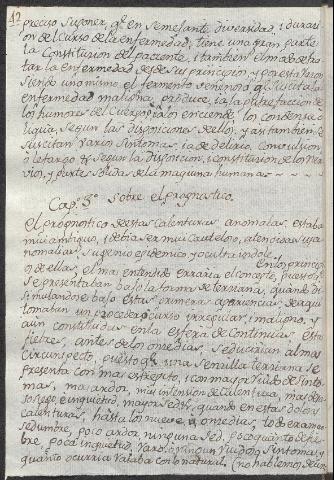 12
preciso suponer qe. en semejante diversidad, i durasi
on del curso de la enfermedad, tiene una gran parte
la Constitusion del paciente, i tambien el mal de tra
tar la enfermedad desde sus principios, y por esta rason
siendo uno mismo el fermento venenoso qe suscita la
enfermedad maligna, produce, ia la putrefaccion de
los humores del Cuerpo, ia los enciende, los condensa, o
liquia, segun las disposiciones de ellos, y asi tambien le
suscitan varios sintomas, ia de delirio, Convulsion
o letargo &c segun la disposicion, i constitusion de los Ner
vios, y partes solidas de la maquina humana
Cap. 3o. Sobre el prognostico.
El prognostico de estas Calenturas anomalas, estaba
mui ambiguo, i debia ser mui Cauteloso, atendidas su ano
malias, su genio epidemico y oculta indole.
En los principi
os de ellas, el mas entendido erraria el conocerlas, puesto qe
se presentaban bajo la forma de tersiana, quando di
simulandose bajo estas primeras apariencias, de aqui
tomaban un proceder, o curso irregular, i maligno, y
aun constituidas en la esfera de continuas, esta
fiebre, antes de los once dias, seducirian al mas
Circunspecto, puesto qe una sensilla tersiana se
presenta con mas estrepito, i con mayor ruido de sinto
mas, mas ardor, mas intension de Calentura, mas desa
sosiego e inquietud, mayor sed &c. quando en estas dolosas
calenturas, hasta los nueve, u once dias, todo era man
sedumbre, poco ardor, ninguna sed, poco quanto de fie
bre, poca inquietud, raro, o ningun ruidoso sintoma, y
quanto ocurria bajaba con lo natural, (no hablemos de un